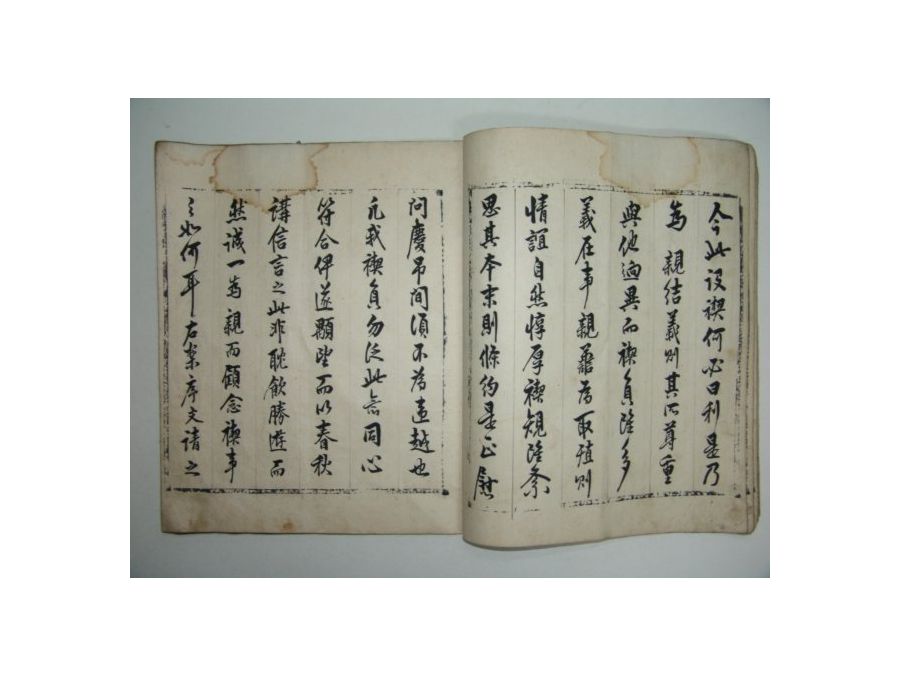 今此設禊何必曰利是乃
為 親結義則其所尊重
與他逈異而禊員雖多
義在事親雖為取殖則
情誼自然惇厚禊規雖紊
思其本末則條約是正
問慶吊間須不為違越也
凡我禊員勿泛此言同心
符合伊遂顒望而以春秋
講信言之此非耽飲勝遊而
然誠一為親而顧念禊事
之如何耳右案序文請之